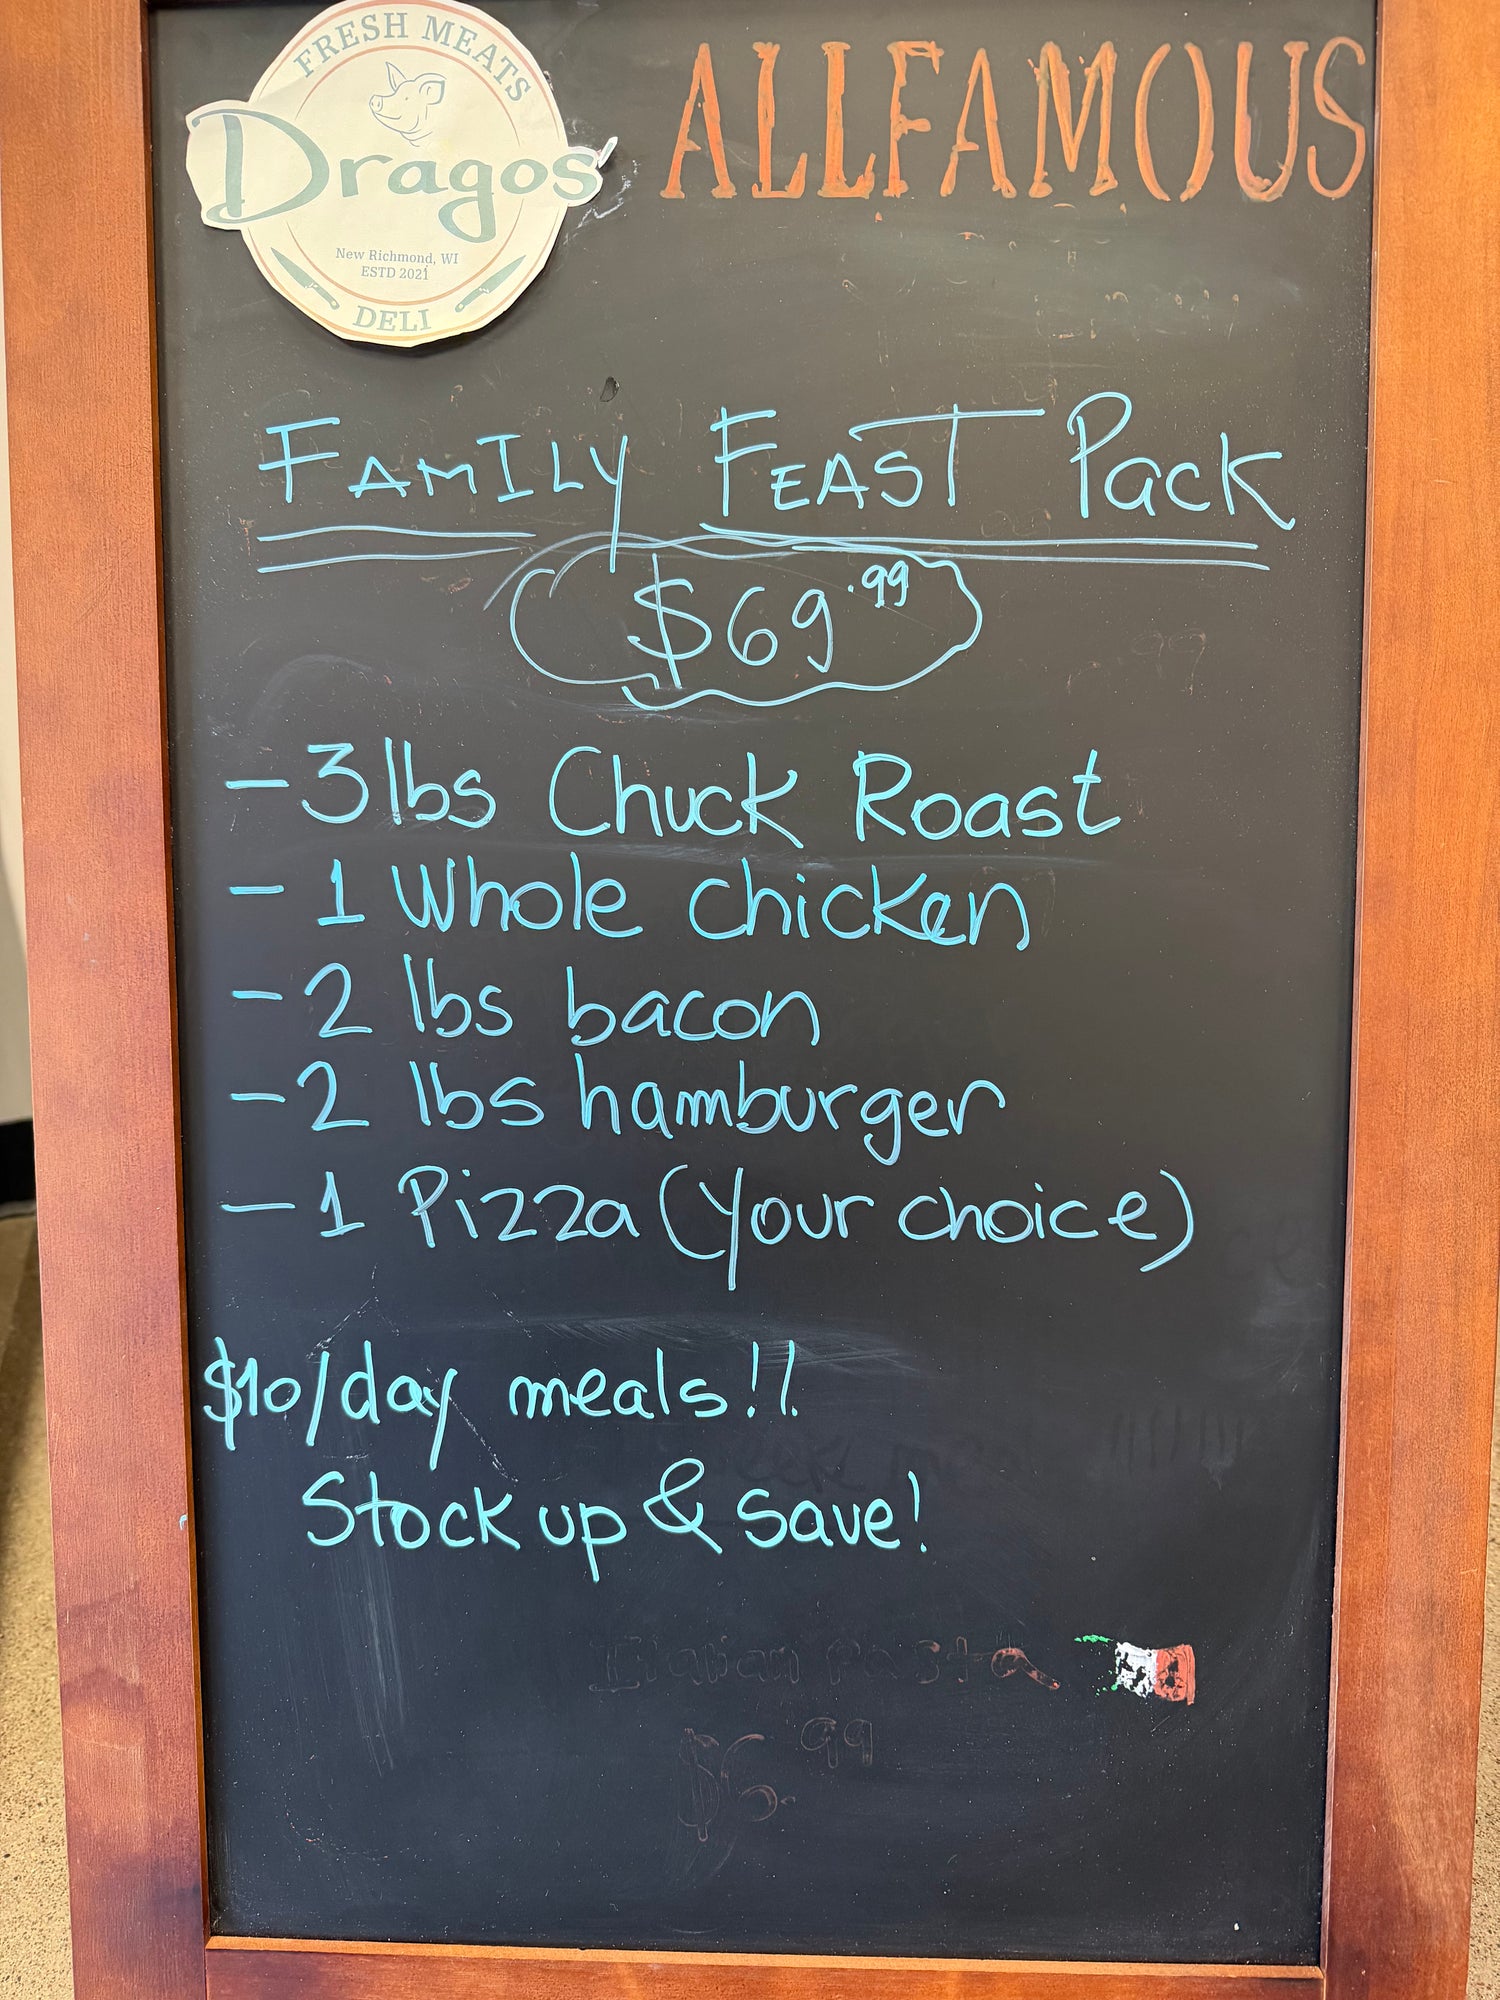 FRESH MEATS
Dragos'
New Richmond, WI
ESTD 2021
DELI
ALLFAMOUS
FAMILY FEAST Pack
$69.99
- 3 lbs Chuck Roast
- 1 Whole chicken
- 2 lbs bacon
- 2 lbs hamburger
- 1 Pizza (your choice)
$10/day meals!!
Stock up & save!
Italian Pasta
$6.99